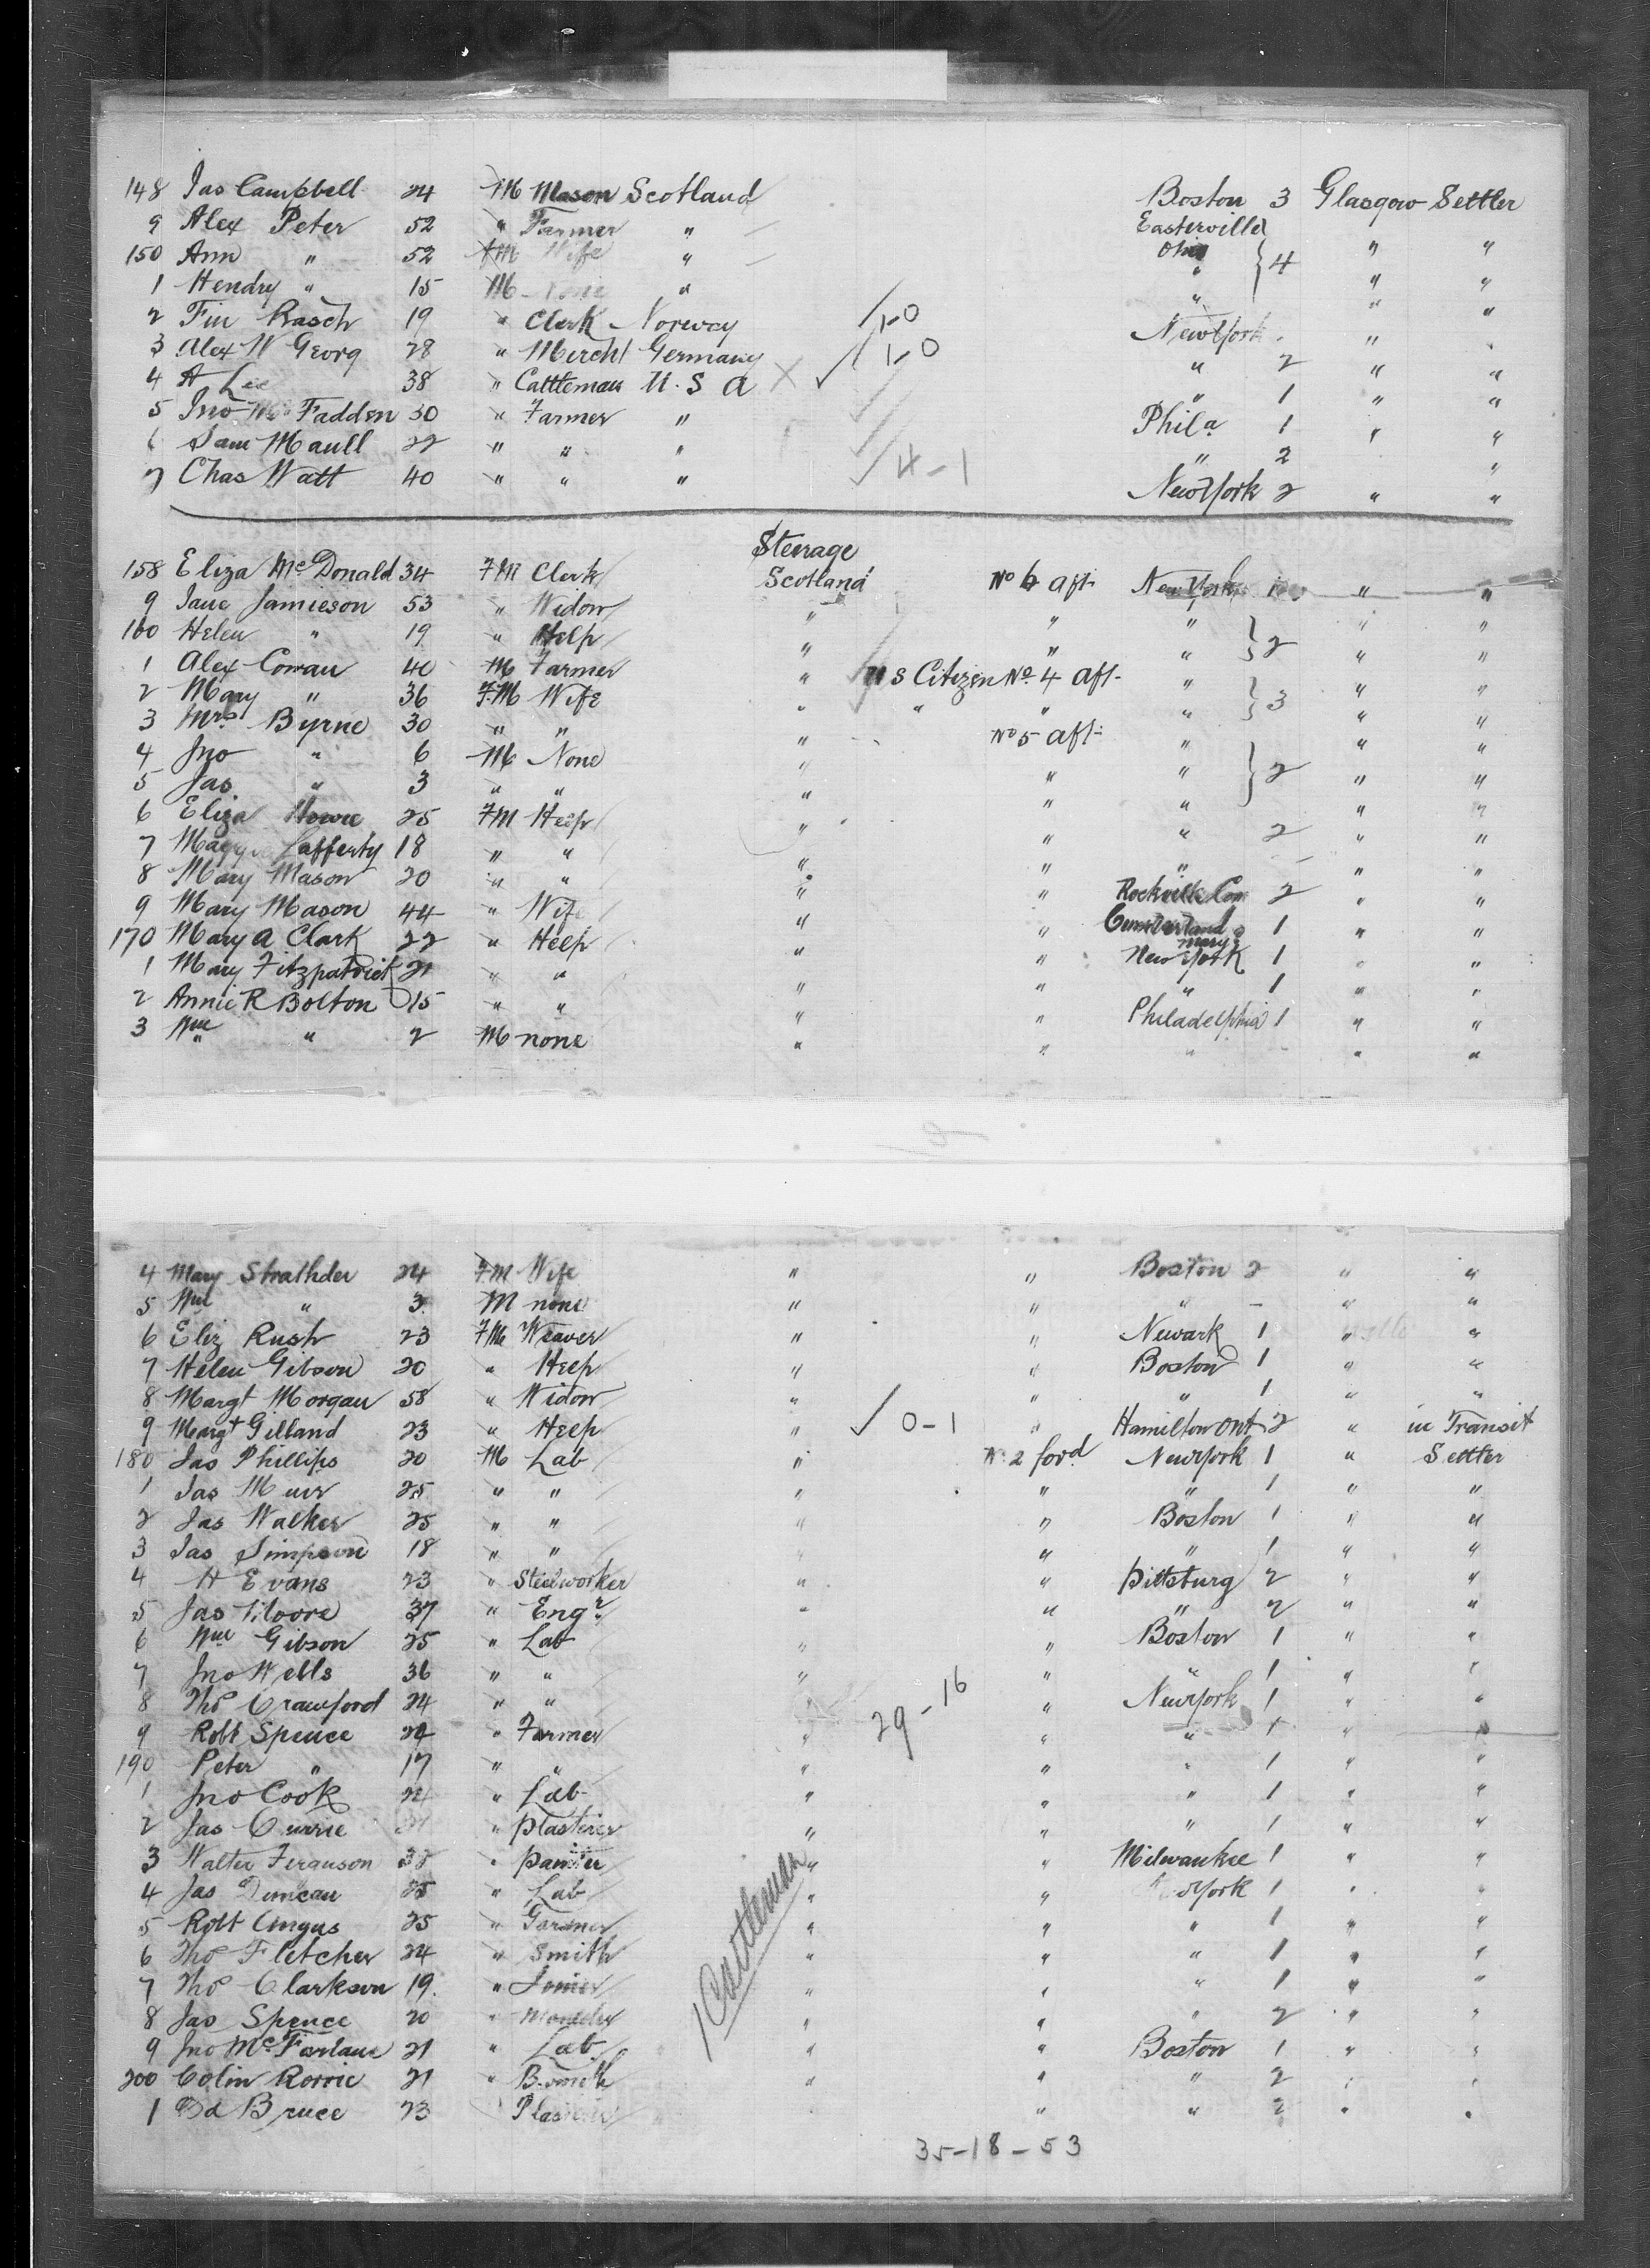 148 Jas Campbell 24 M Mason Scotland Boston 3 Glasgow Settler
9 Alex Peter 52 " Farmer " Easterville
150 Ann " 52 FM Wife " Ohio } 4 " "
1 Hendry " 15 M None " " " "
2 Fin Rasch 19 " Clerk Norway 1-0 " " "
3 Alex W Georg 28 " Mercht Germany ✓ 1-0 New York "
4 A Lee 38 " Cattleman U.S A X ✓ " 2 " "
5 Jno Mc Fadden 30 " Farmer " ✓ " 1 " "
6 Sam Maull 22 " " " ✓ Phila 1 " "
7 Chas Watt 40 " " " ✓ 4-1 " 2 "
New York 2 " "
Steerage
158 Eliza McDonald 34 FM Clerk Scotland No 6 aft New York " "
9 Jane Jamieson 53 " Widow " " " " "
160 Helen " 19 " Help " " " } 2 " "
1 Alex Cowan 40 M Farmer " U S Citizen No 4 aft " " "
2 Mary " 36 FM Wife " " " " } 3 " "
3 Mrs Byrne 30 " " " No 5 aft " " "
4 Jno " 6 M None " " " } 2 " "
5 Jas " 3 " " " " " " "
6 Eliza Howie 25 FM Help " " " 2 " "
7 Maggie Lafferty 18 " " " " " " "
8 Mary Mason 20 " " " " Rockville Con 2 " "
9 Mary Mason 44 " Wife " " Cumberland Mary 1 " "
170 Mary A Clark 22 " Help " " New York 1 " "
1 Mary Fitzpatrick 21 " " " " " 1 " "
2 Annie R Bolton 15 " " " " Philadelphia 1 " "
3 Wm " 2 M none " " " " "
4 Mary Strathder 24 FM Wife " " Boston 2 " "
5 Wm " 3 M none " " " - " "
6 Eliz Rush 23 FM Weaver " " Newark 1 " "
7 Helen Gibson 20 " Help " " Boston 1 " "
8 Margt Morgan 58 " Widow " " " 1 " "
9 Margt Gilland 23 " Help " ✓ 0-1 " Hamilton Ont 2 " in Transit
180 Jas Phillips 20 M Lab " No 2 ford New York 1 " Settler
1 Jas Muir 25 " " " " " 1 " "
2 Jas Walker 25 " " " " Boston 1 " "
3 Jas Simpson 18 " " " " " 1 " "
4 H Evans 23 " Steelworker " " Pittsburg 2 " "
5 Jas Moore 37 " Engr " " " 2 " "
6 Wm Gibson 25 " Lab " " Boston 1 " "
7 Jno Wells 36 " " " " " 1 " "
8 Thos Crawford 24 " " " 29-16 " New York 1 " "
9 Robt Spence 24 " Farmer " " " 1 " "
190 Peter " 17 " " " " " 1 " "
1 Jno Cook 24 " Lab " " " 1 " "
2 Jas Currie " Plasterer " " " 1 " "
3 Walter Ferguson " Painter " " Milwaukee 1 " "
4 Jas Duncan 25 " Lab " " York 1 " "
5 Robt Angus 25 " Gardner " " " 1 " "
6 Thos Fletcher 24 " Smith " " " 1 " "
7 Thos Clarkson 19 " Joiner " " " 1 " "
1 Cattleman
8 Jas Spence 20 " " " " 2 " "
9 Jno McFarlane 21 " Lab " " Boston 1 " "
200 Colin Rorrie 21 " B.smith " " " 2 " "
1 Bruce 23 Plasterer " " 2 " "
35-18-53